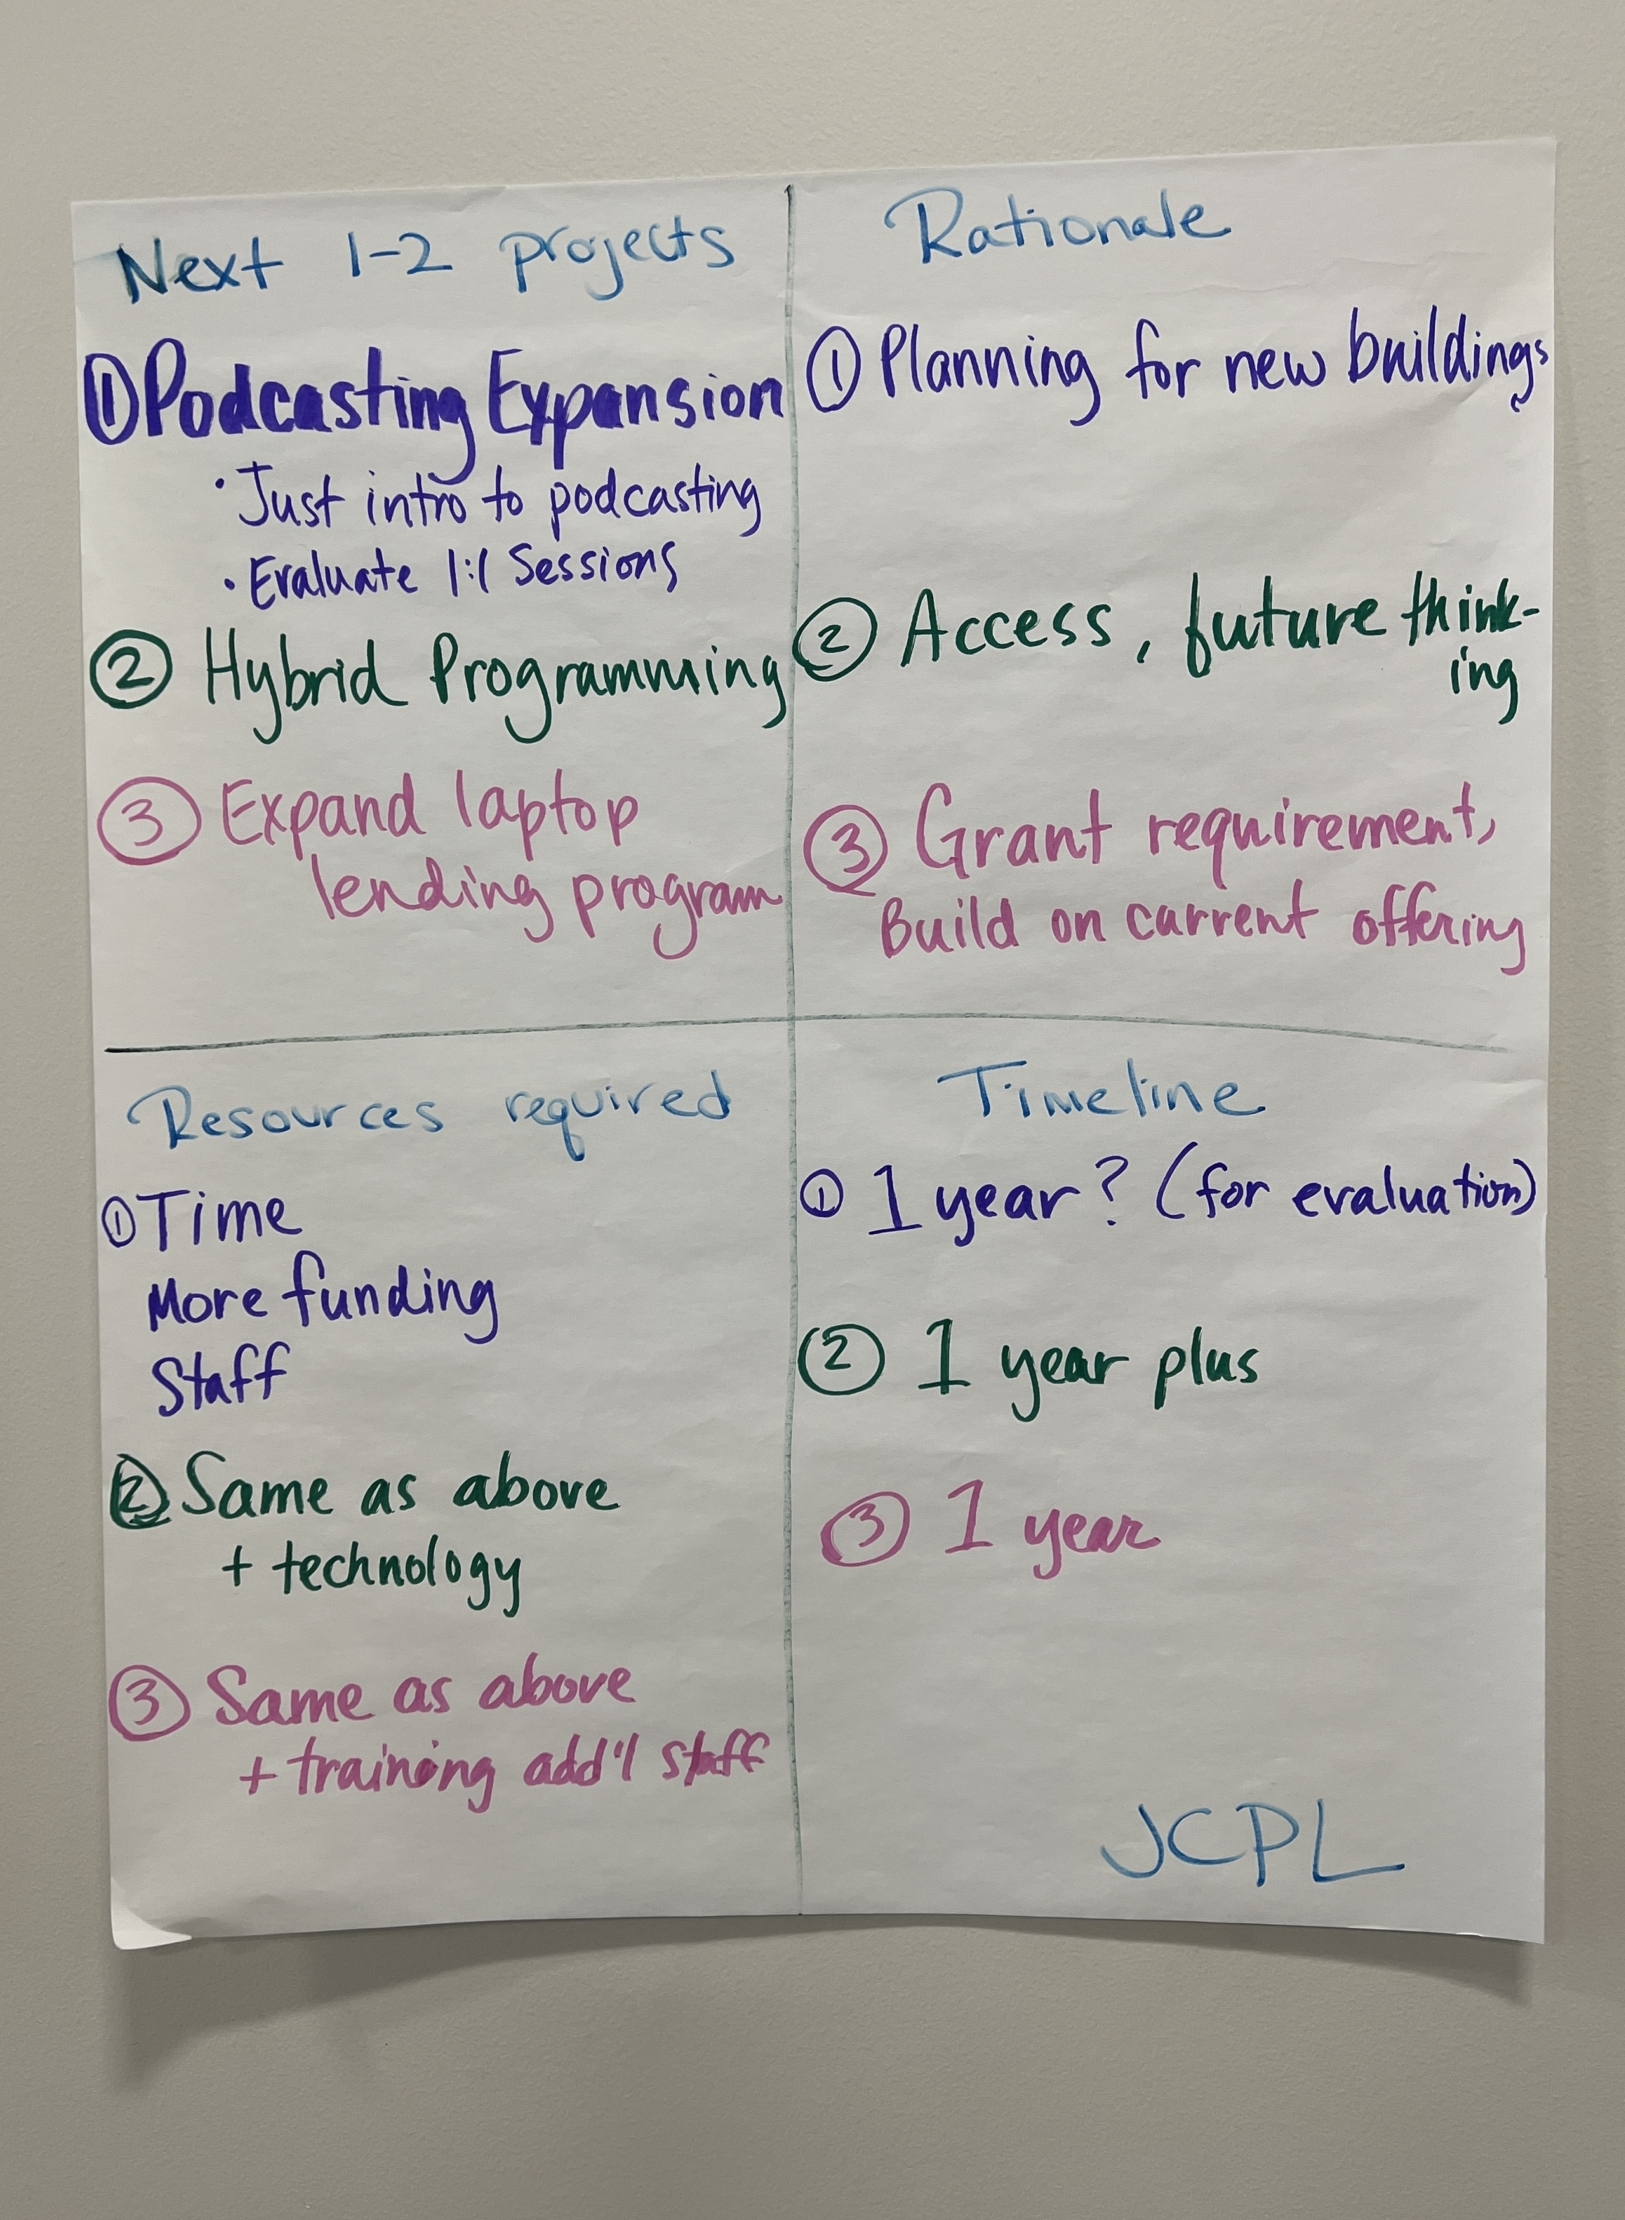 Next 1-2 projects
① Podcasting Expansion
· Just intro to podcasting
· Evaluate 1:1 Sessions
② Hybrid Programming
③ Expand laptop
lending program
Rationale
① Planning for new buildings
② Access, future think-
ing
③ Grant requirement,
Build on current offering
Resources required
① Time
More funding
Staff
② Same as above
+ technology
③ Same as above
+ training add'l staff
Timeline
① 1 year? (for evaluation)
② 1 year plus
③ 1 year
JCPL